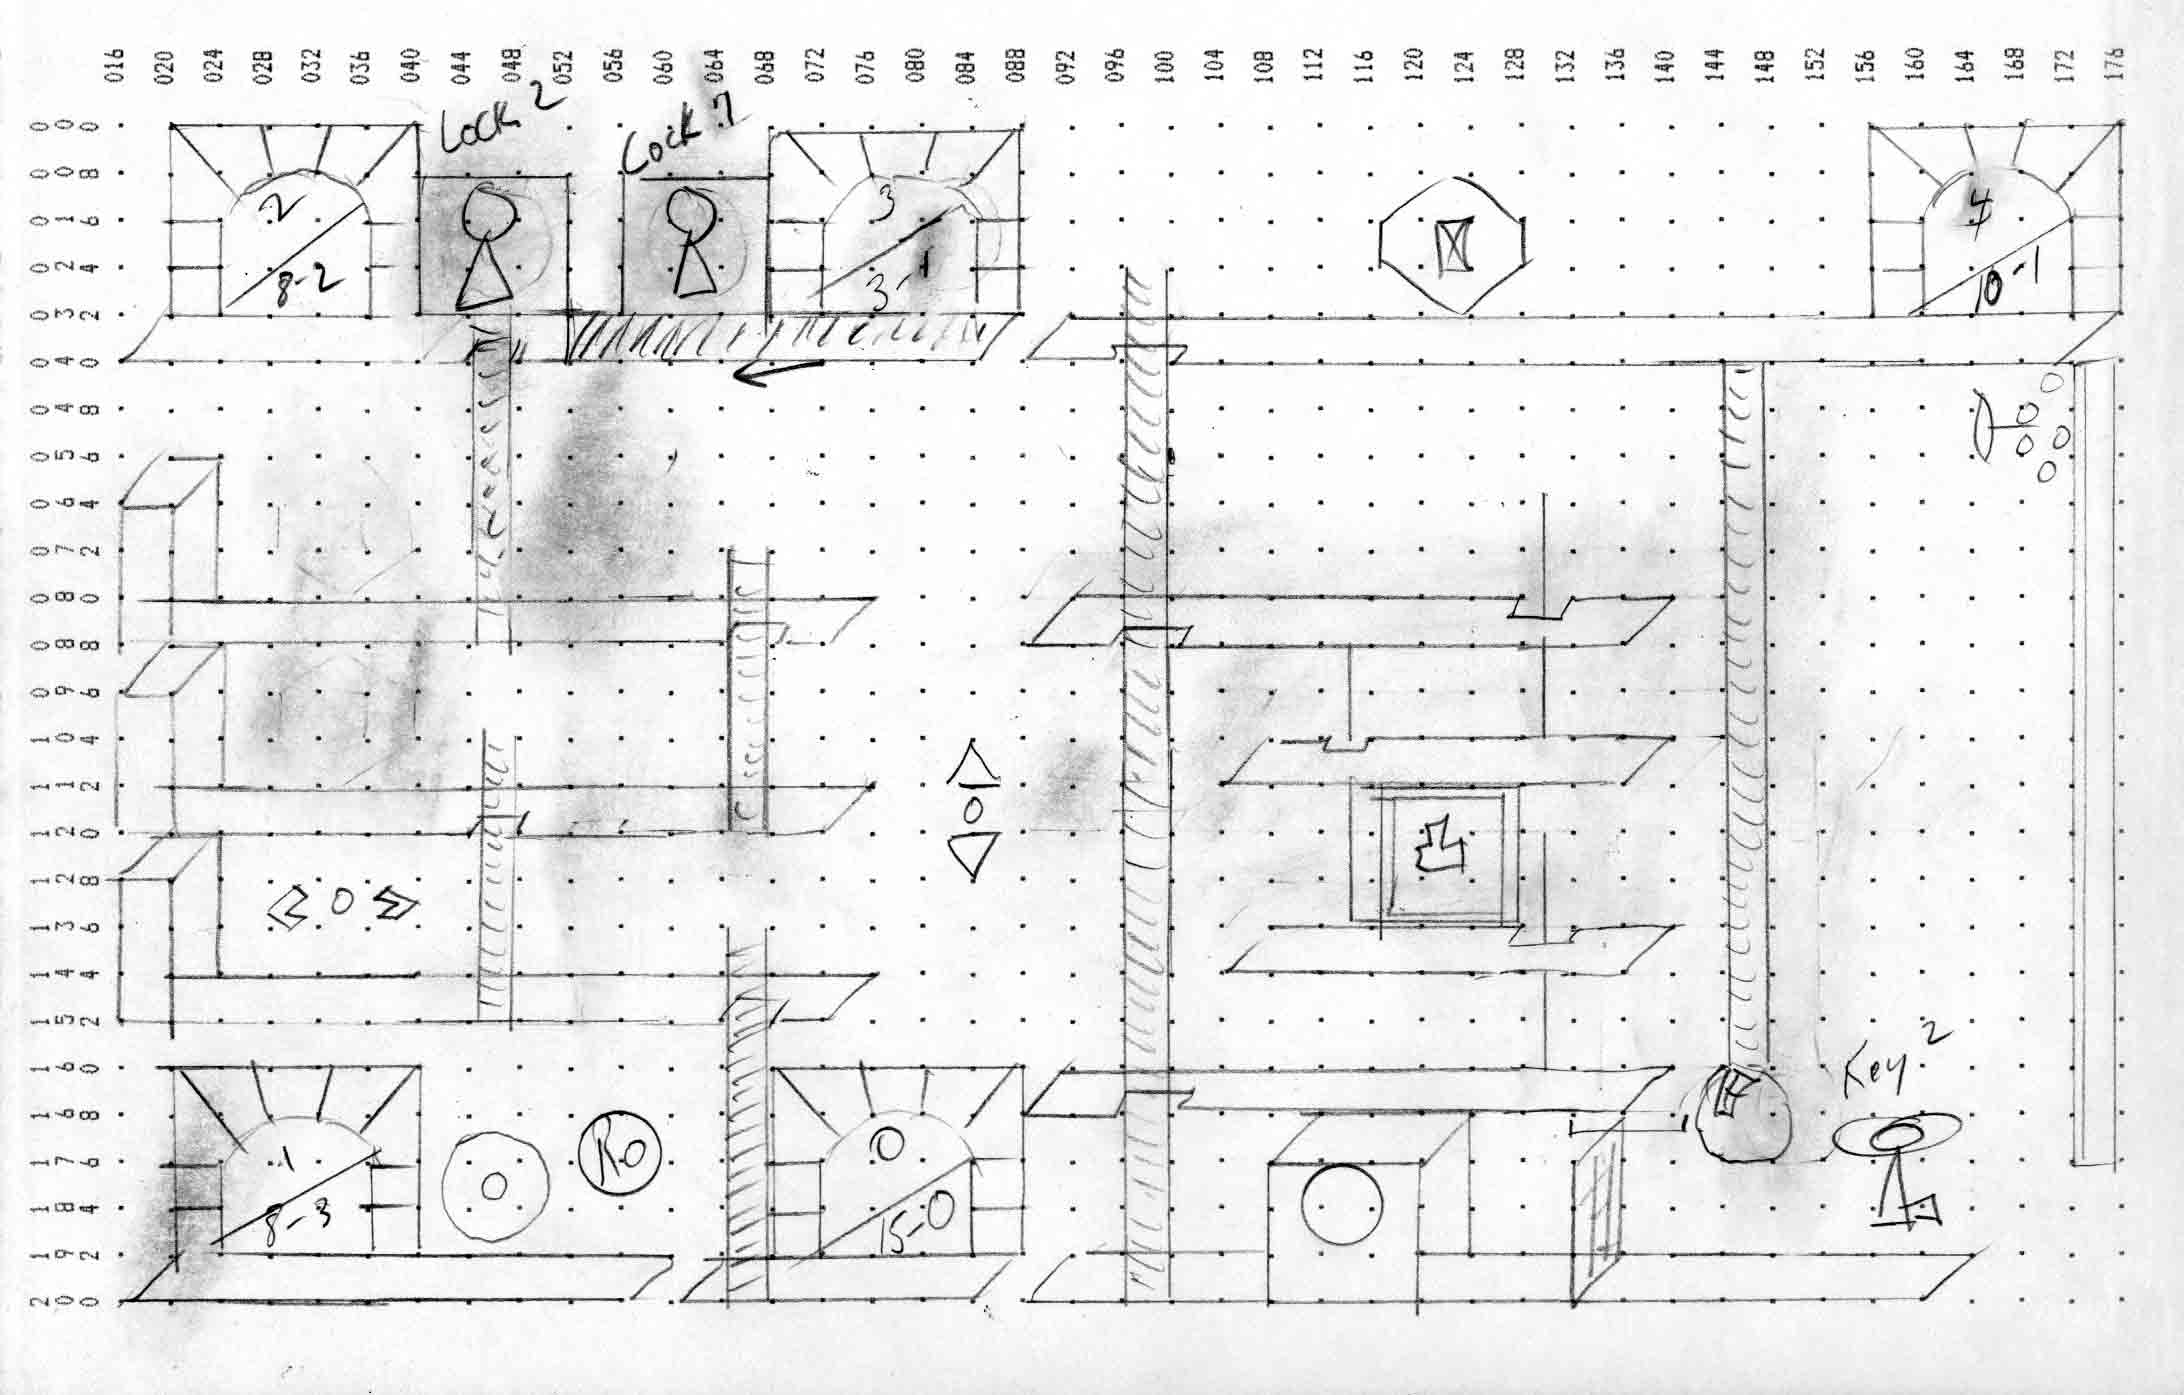 016 020 024 028 032 036 040 044 048 052 056 060 064 068 072 076 080 084 088 092 096 100 104 108 112 116 120 124 128 132 136 140 144 148 152 156 160 164 168 172 176
Lock 2
Lock 7
000
008
016
024
032
040
048
056
064
072
080
088
096
104
112
120
128
136
144
152
160
168
176
184
192
200
2
8-2
3
3-1
4
10-1
0
0
Key 2
1
8-3
Ro
0
15-0